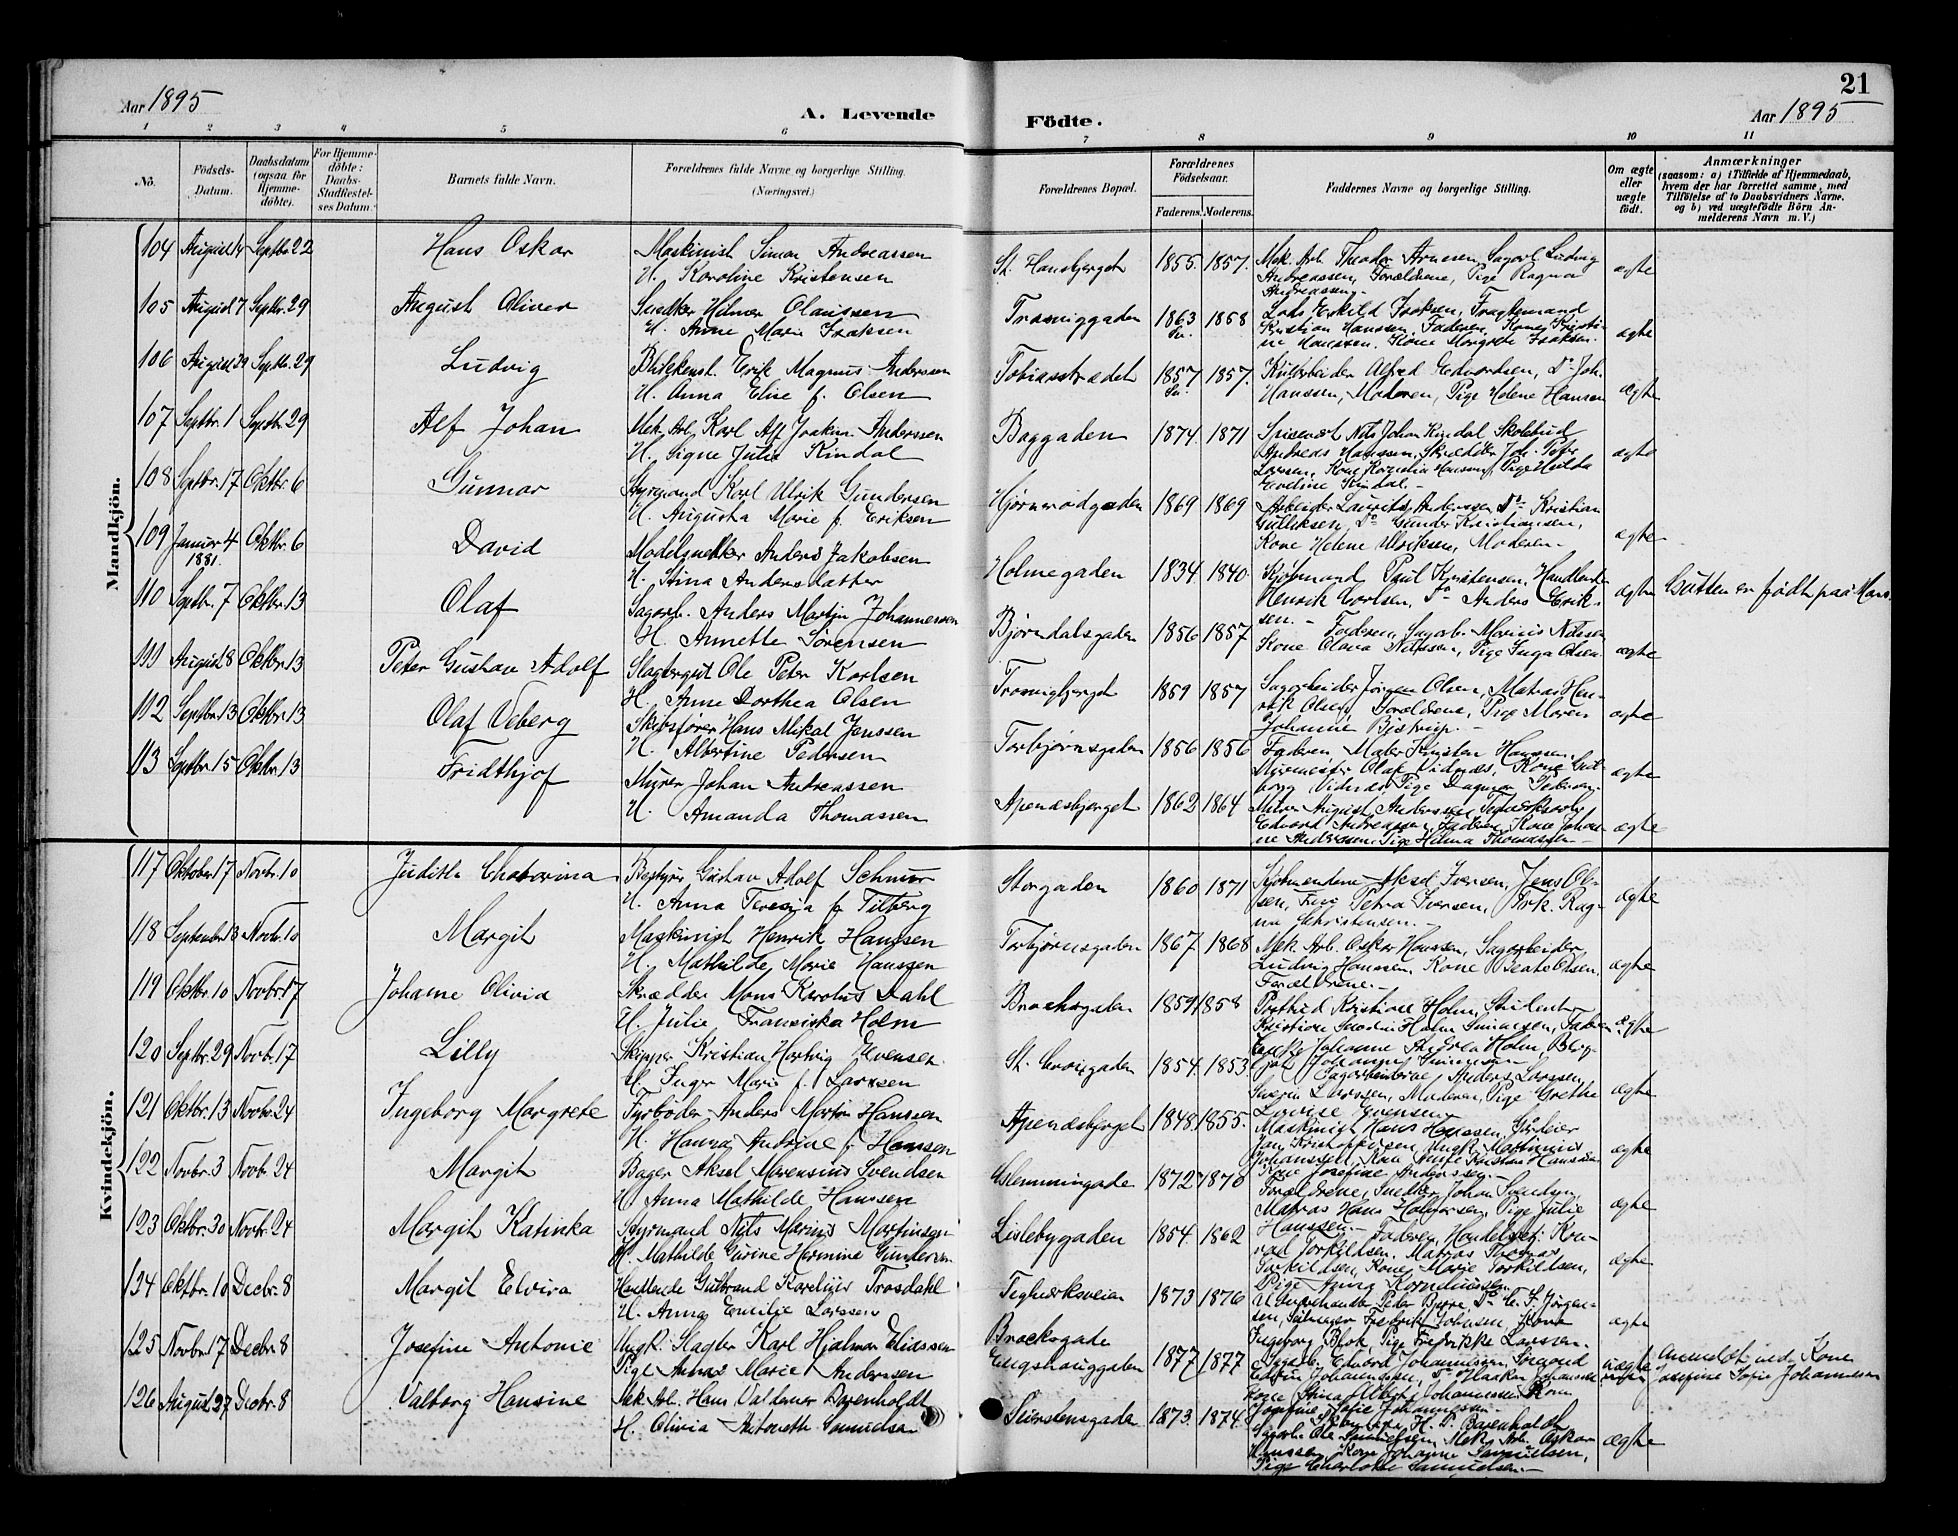 Aar 1895
A. Levende
Födte.
21
Aar 1895
1 2 3 4 5 6 7 8 9 10 11
No.
Födsels-Datum.
Daabsdatum (ogsaa for Hjemmedöbte).
For Hjemmedöbte: Daabs-Stadfæstelses Datum.
Barnets fulde Navn.
Forældrenes fulde Navne og borgerlige Stilling. (Næringsvei.)
Forældrenes Bopæl.
Forældrenes Födselsaar.
Faderens. Moderens.
Faddernes Navne og borgerlige Stilling.
Om ægte eller uægte födt.
Anmærkninger
(saasom: a) i Tilfælde af Hjemmedaab, hvem der har forrettet samme, med Tilföielse af to Daabsvidners Navne. og b) ved uægtefödte Börn Anmelderens Navn m. V.)
Mandkjön.
104 August 14 Septbr. 22 Hans Oskar Maskinist Simon Andreassen
H. Karoline Kristensen
St. Hansbjerget 1855. 1857. Mek. Arb. Theodor Arnesen, Sagarb. Ludvig
Andreassen, Forældrene, Pige Ragna
Andreassen.
ægte
105 August 7 Septbr. 29 August Oliver Snedker Hilmer Olaussen
H. Anne Marie Isaksen
Trosviggaden 1863 1858 Lods Eskild Isaksen, Fragtemand
Kristian Hanssen, Faderen, Kone Kristine Hanssen, Kone Margrete Isaksen.
ægte
106 August 29 Septbr. 29 Ludvig Blikkensl. Erik Magnus Anderssen
H. Anna Elise f. Olsen
Tobiasstrædet 1857 1857. Kularbeider Alfred Edvardsen, Do Joh.
Hanssen, Moderen, Pige Helene Hansen
ægte
107 Septbr. 1 Septbr. 29 Alf Johan Mek. Arb. Karl Alf Joakim Anderssen
H. Signe Julie Kindal
Baggaden 1874 1871 Spisevært Nils Johan Kindal
Andreas Hanssen, Skrædder Joh. Petr.
Larsen, Kone Kornelia Hanssen, Pige Hulda
Eveline Kindal.
ægte
108 Septbr. 17 Oktbr. 6 Gunnar Styrmand Karl Ulrik Gundersen
H. Augusta Marie f. Eriksen
1869 1869 Arbeider Laurits Anderssen Do Kristian
Gulliksen, Do Gunder Kristiansen,
Kone Helene Ulriksen, Moderen.
ægte
109 Januar 4 1881. Oktbr. 6 David Modelsnedker Anders Jakobsen
H. Stina Andersdatter
Holmegaden 1834 1840. Kjøbmand Paul Kristensen, Handlende
Henrik Carlsen, Do Anders Eriksen.
ægte Gutten er født paa
110 Septbr. 7 Oktbr. 13 Olaf Sagarb. Anders Martin Johannessen
H. Annette Sørensen
Bjørndalsgaden 1856 1857 Faderen, Sagarb. Marius Nilssen
Kone Olava Nilssen, Pige Inga Olsen
ægte
111 August 8 Oktbr. 13 Peter Gustav Adolf Slagtergut Ole Peter Karlsen
H. Anne Dorthea Olsen
Trosvigbjerget 1859 1857 Sagarbeider Jørgen Olsen, Matros Henrik Olsen, Forældrene, Pige Maren
Johanne Bjstrup.
ægte
112 Septbr. 13 Oktbr. 13 Olaf Veberg Skibsfører Hans Mikal Jenssen
H. Albertine Pedersen
Torbjørnsgaden 1856 1856 Faderen, Maler Kristen Hanssen,
Murmester Olaf Vidnæs, Kone
Vidnæs, Pige Dagmar Pedersen
ægte
113 Septbr. 15 Oktbr. 13 Fridthjof Murer Johan Andreassen
H. Amanda Thomassen
Apenæsbjerget 1862 1864 Murer August Anderssen,
Edvard Andreassen, Faderen, Kone Johanne Anderssen, Pige Hilma Thomassen.
ægte
Kvindekjön.
117 Oktober 17 Novbr. 10 Judith Chatorina Bestyrer Gustav Adolf Schnurr
H. Anna Teresia f. Titberg
Storgaden 1860 1871 Kjøbmændene Aksel Iversen, Jens Olsen, Petra Iversen, Frk. Ragna Christensen.
ægte
118 September 3 Novbr. 10 Margit Maskinist Henrik Hanssen
H. Mathilde Marie Hanssen
Torbjørnsgaden 1867 1868 Mek. Arb. Oskar Hanssen, Sagarbeider
Ludvig Hanssen, Kone Beate Olsen,
Forældrene.
ægte
119 Oktbr. 10 Novbr. 17 Johanne Olivia Skrædder Mons Karolus Dahl
H. Julie Franciska Holm
Brochsgaden 1859 1858 Kristiane Holm, Student
Kristian Holm Simensen, Faderen
Enke Johanne Andrea Holm,
ægte
120 Septbr. 29 Novbr. 17 Lilly Skipper Kristian Hartvig Evensen
H. Inger Marie f. Larssen
St. Croixgaden 1854. 1853 Sagarbeiderne Anders Larssen,
Severin Larssen, Moderen, Pige Grethe
Lovise Evensen
ægte
121 Oktbr. 13 Novbr. 24 Ingeborg Margrete Fyrbøder Anders Martin Hanssen
H. Hanna Andrine f. Hanssen
Apenæsbjerget 1848. 1855. Maskinist Hans Hanssen, Garder
Jan Kristoffersen, Ungk. Mathinius
Johanssen,
Kone Josefine Anderssen.
ægte
122 Novbr. 3 Novbr. 24 Margit Bager Aksel Marensius Svendsen
H. Anna Mathilde Hanssen
Glemmingade 1872 1870 Forældrene, Snedker Johan Svendsen,
Matros Hans Halvorsen, Pige Julie
Hanssen.
ægte
123 Oktbr. 30 Novbr. 24 Margit Katinka Styrmand Nils Marius Martinsen
H. Mathilde Gurine Hermine Gundersen
Lislebygaden 1854. 1862 Faderen, Handelsbetj. Konrad Torkildsen, Matros Thomas
Torkildsen, Kone Marie Torkildsen,
Pige Anna Korneliussen.
ægte
124 Oktbr. 10 Decbr. 8 Margit Elvira Handlende Gulbrand Karelius Trosdahl
H. Anna Emilie Larssen
Teglverksveien 1873 1876 Peder Bjerre, Do C. F. Jørgensen, Fredrik Johnsen, Kone
Ingeborg Blok, Pige Fredrikke Larssen.
ægte
125 Novbr. 17 Decbr. 8 Josefine Antonie Ungk. Slagter Karl Hjalmar Eliassen
Pige Anna Marie Anderssen
Brocksgade
Enghauggaden 1877 1877 Sagarb. Edvard Johannessen, Sømand
Edvin Johannessen, Do Haakon Johannessen
Kone Anna Johannessen, Kone
Josefine Sofie Johannessen.
uægte Anmeldt ved Kone
Josefine Sofie Johannessen
126 August 27 Decbr. 8 Valborg Hansine Mek. Arb. Hans Valdemar Barenholdt
H. Olivia Antonette Samuelsen
1873. 1874. H. P. Barenholdt
Sagarb. Ole Samuelsen, Mek. Arb. Oskar
Hanssen, Kone Johanne Samuelsen,
Pige Charlotte Samuelsen.
ægte